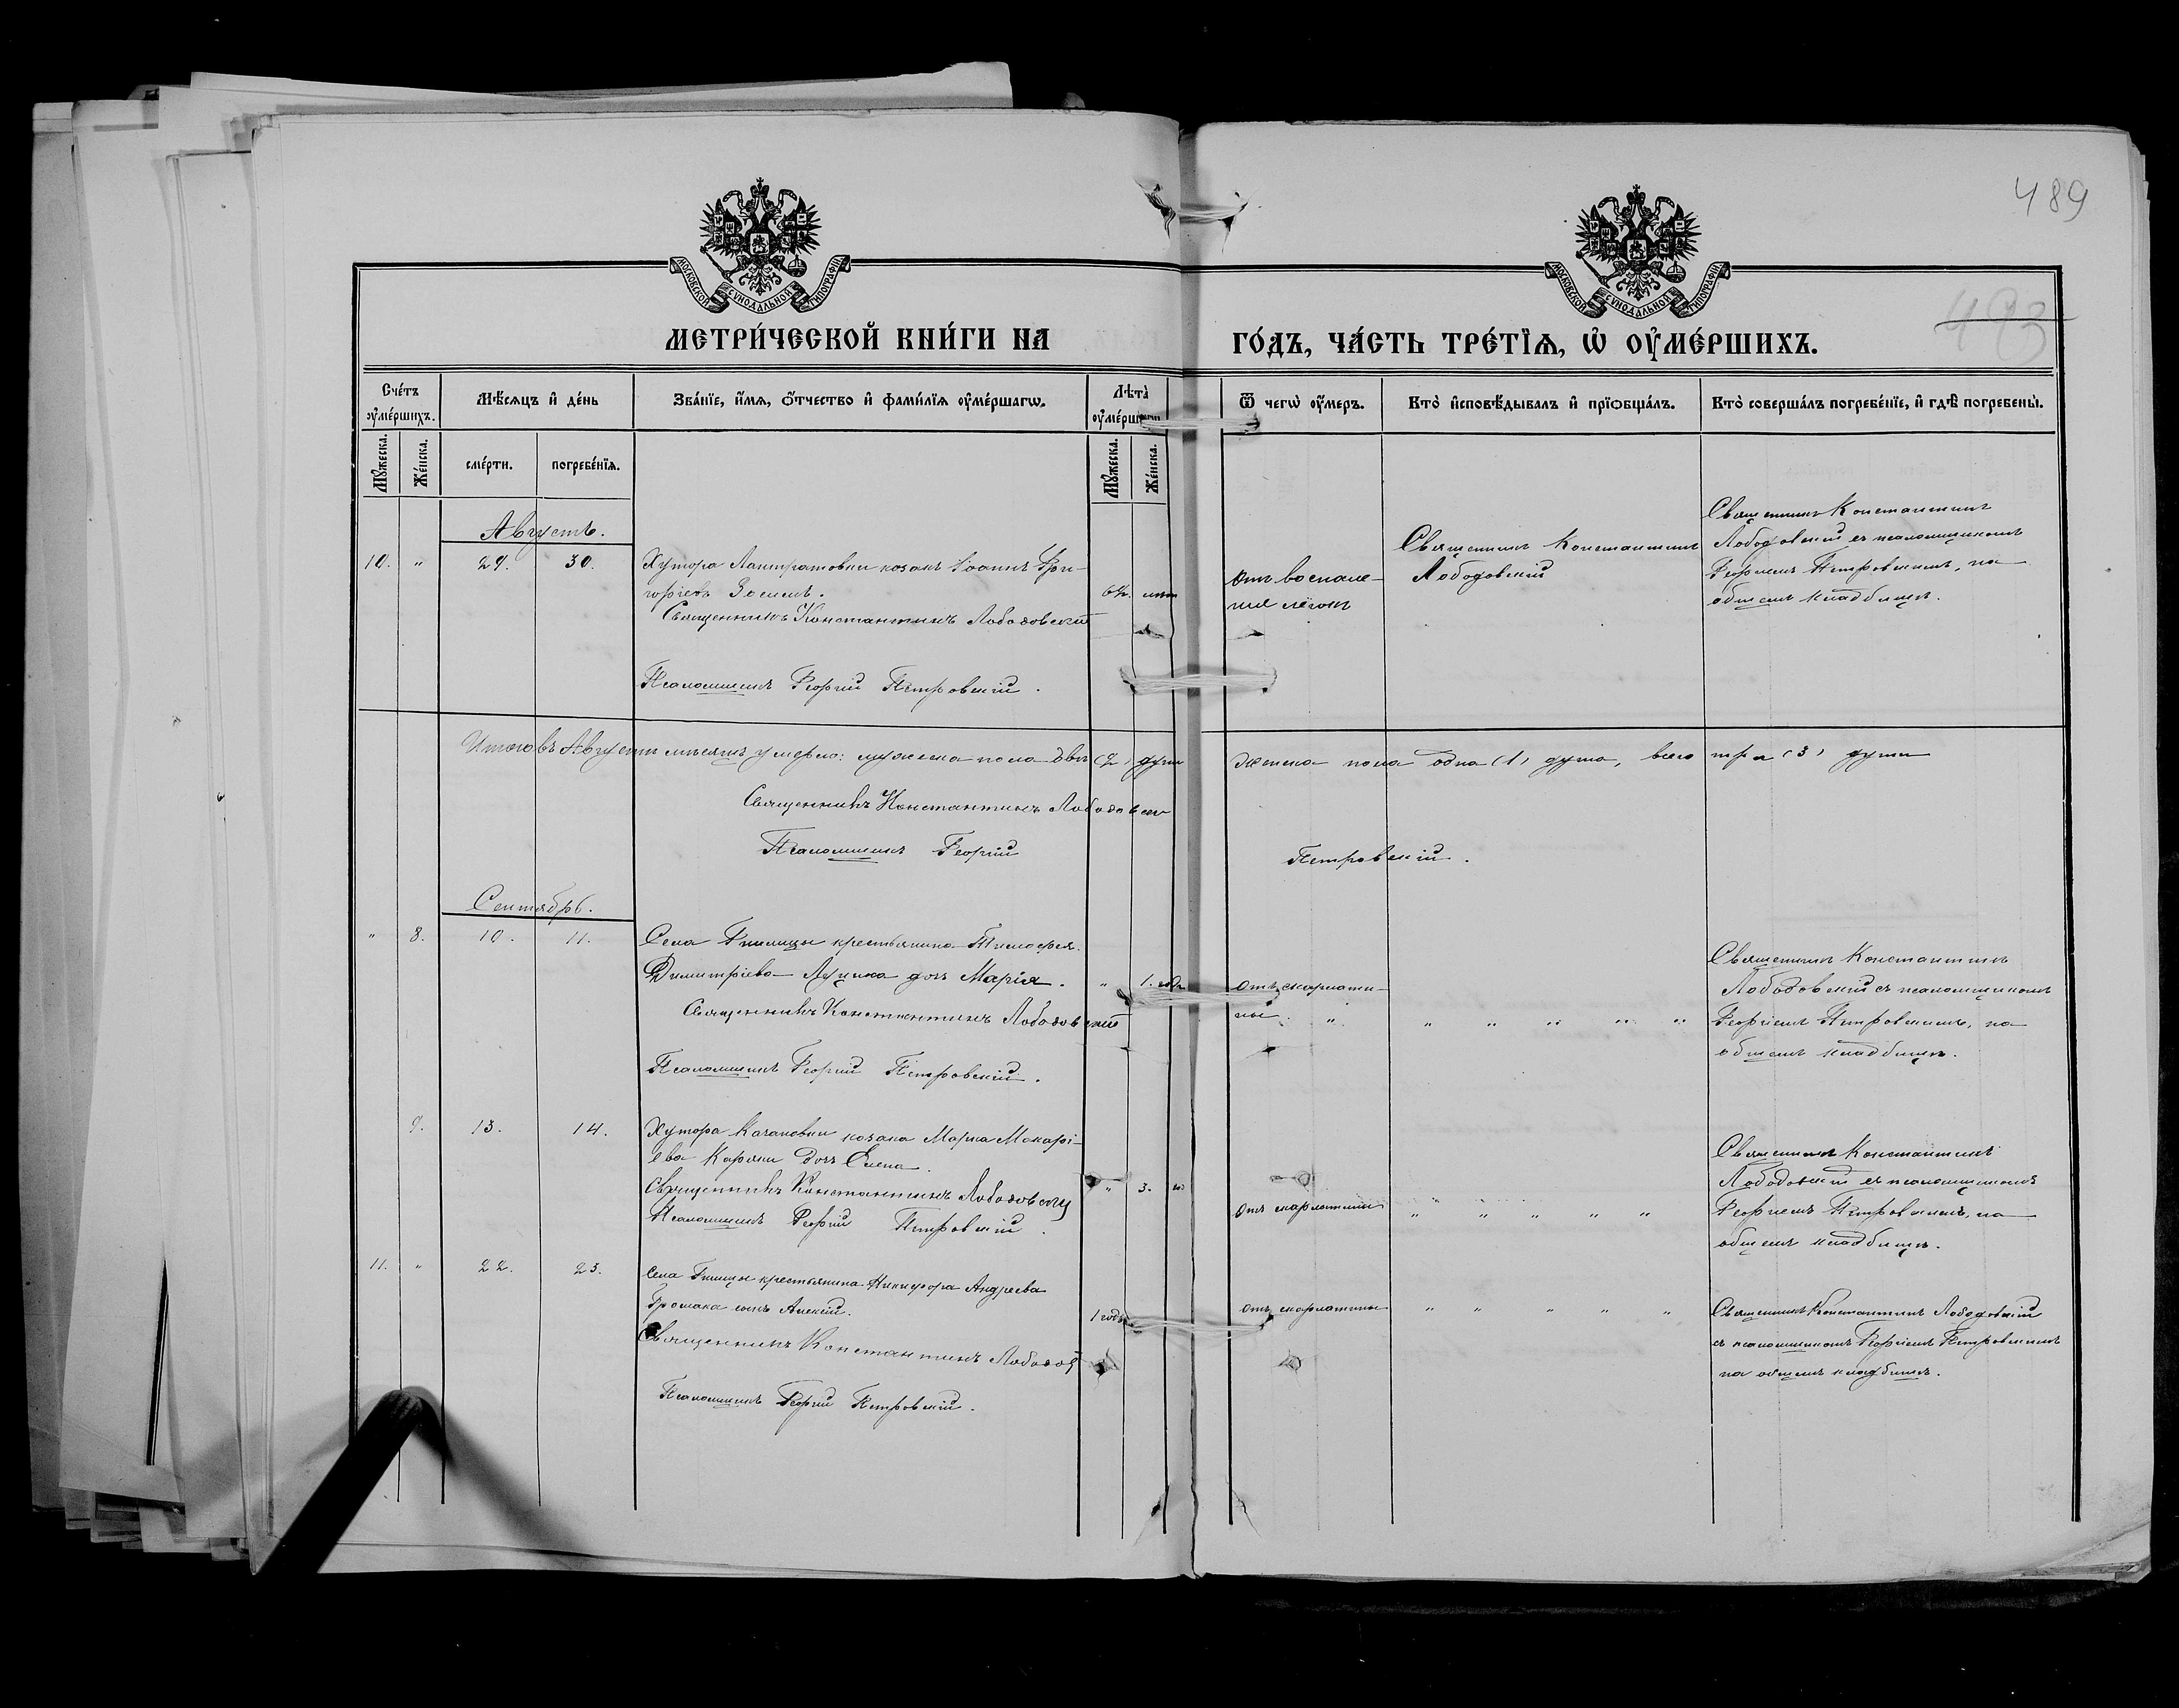 489
493
МОСКОВСКОЙ СѴНОДАЛЬНОЙ ТИПОГРАФІИ
МОСКОВСКОЙ СѴНОДАЛЬНОЙ ТИПОГРАФІИ
МЕТРИ́ЧЕСКОЙ КНИ́ГИ НА ГО́ДЪ, ЧА́СТЬ ТРЕ́ТЇѦ, Ѡ҆ ОУ҆МЕ́РШИХЪ.
Сче́тъ оу҆ме́ршихъ.
Мѣ́сяцъ и҆ де́нь
Зва́нїе, и҆́мѧ, ѻ҆́тчество и҆ фами́лїѧ оу҆ме́ршагѡ.
Лѣта̀ оу҆ме́рш
Ѿ чегѡ̀ оу҆́меръ.
Кто̀ и҆сповѣ́дывалъ и҆ прїѻбща́лъ.
Кто̀ соверша́лъ погребе́нїе, и҆ гдѣ̀ погребены̀.
Мꙋ́жеска.
Же́нска.
сме́рти.
погребе́нїѧ.
Мꙋ́жеска.
Же́нска.
Августъ.
10. " 29. 30.
Хутора Лантратовки козакъ Іоаннъ Гри-
горіевъ
Священникъ Константинъ Лободовскій
Псаломщикъ Георгій Петровскій.
лѣтъ
Отъ воспале-
нія легкихъ
Священникъ Константинъ
Лободовскій
Священникъ Константинъ
Лободовскій съ псаломщикомъ
Георгіемъ Петровскимъ, на
общемъ кладбищѣ.
Итого въ Августѣ мѣсяцѣ умерло: мужеска пола двѣ (2) души женска пола одна (1) душа, всего три (3) души
Священникъ Константинъ Лободовскій
Псаломщикъ Георгій Петровскій.
Сентябрь.
" 8. 10. 11.
Села Гнилицы крестьянина Тимофея
Димитріева Луцика дочь Марія.
" 1. годъ
Священникъ Константинъ Лободовскій
Псаломщикъ Георгій Петровскій.
Отъ скарлати-
ны. " " " " " "
Священникъ Константинъ
Лободовскій съ псаломщикомъ
Георгіемъ Петровскимъ, на
общемъ кладбищѣ.
9. 13. 14.
Хутора Качановки козака Марка Макарі-
ева дочь Елена.
" 3.
Священникъ Константинъ Лободовскій
Псаломщикъ Георгій Петровскій.
Отъ скарлатины " " " " "
Священникъ Константинъ
Лободовскій съ псаломщикомъ
Георгіемъ Петровскимъ, на
общемъ кладбищѣ.
11. " 22. 23.
Села Гнилицы крестьянина Никифора Андреева
Громака сынъ Алексій.
1 годъ
Священникъ Константинъ
Псаломщикъ Георгій Петровскій.
Отъ скарлатины " " " " "
Священникъ Константинъ Лободовскій
съ псаломщикомъ Георгіемъ Петровскимъ
на общемъ кладбищѣ.